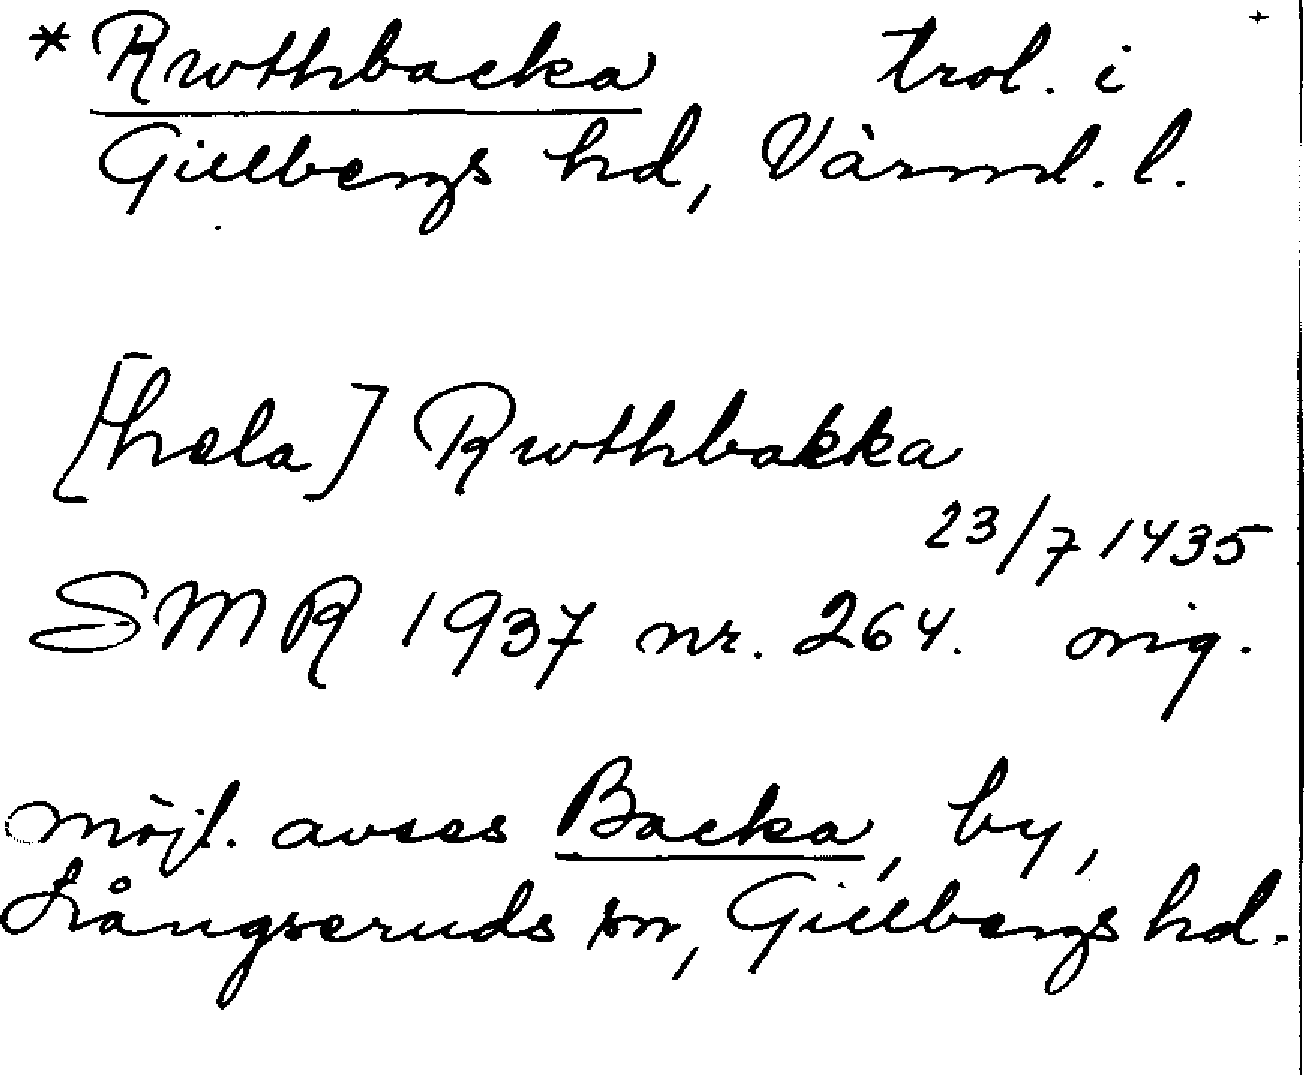 * Rwthbacka trol. i
Gillbergs hd, Värml. l.
[hela] Rwthbakka
23/7 1435
SMR 1937 nr. 264. orig.
möjl. avses Backa, by,
Långseruds sn, Gillbergs hd.